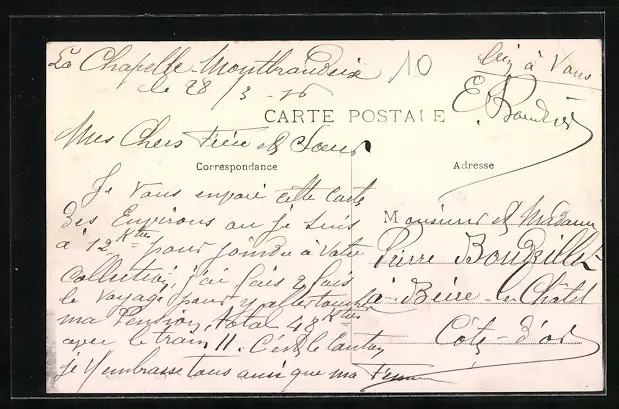 La Chapelle-Montbrandeix
le 28/3-16
10
bien à Vous
CARTE POSTALE
Mes Chers Frère et Sœur
Correspondance
Adresse
Je Vous envoie cette carte
des Environs où je suis
à 12 Ktres pour joindre à Votre
Collection, j'ai fais 2 fois
le Voyage pour y aller toucher
ma Pension, total 48 Ktres
avec le train 11. C'est le
je Vembrasse tous ainsi que ma Femme
Monsieur et Madame
Pierre
à Beire-le-Châtel
Côte-d'or